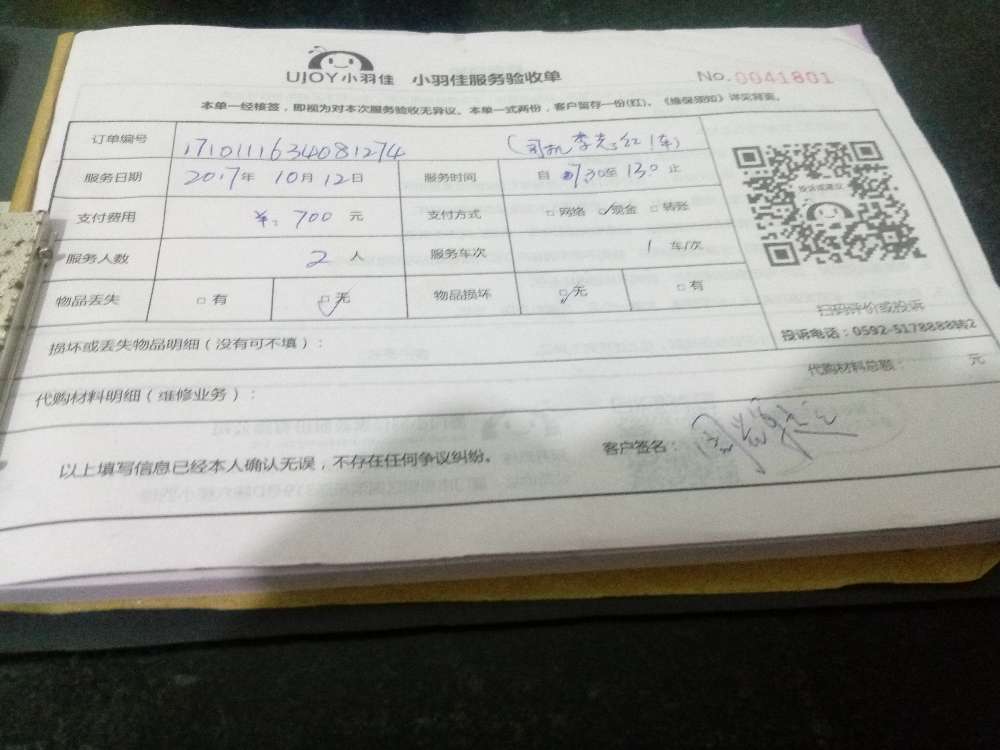 UJOY小羽佳 小羽佳服务验收单 No.0041801
本单一经接签，即视为对本次服务验收无异议。本单一式两份，客户留存一份(红)。《维保须知》详见背面。
订单编号 1710111634081274 (司机 李 红 1车)
服务日期 2017年 10月 12日 服务时间 自 7:30至 13:0 止
支付费用 ￥: 700 元 支付方式 □网络 ☑现金 □转账
服务人数 2 人 服务车次 1 车/次
物品丢失 □有 ☑无 物品损坏 ☑无 □有
投诉或建议
扫码评价或投诉
投诉电话：0592-5178888转2
损坏或丢失物品明细（没有可不填）：
代购材料明细（维修业务）： 代购材料总额： 元
以上填写信息已经本人确认无误，不存在任何争议纠纷。 客户签名：